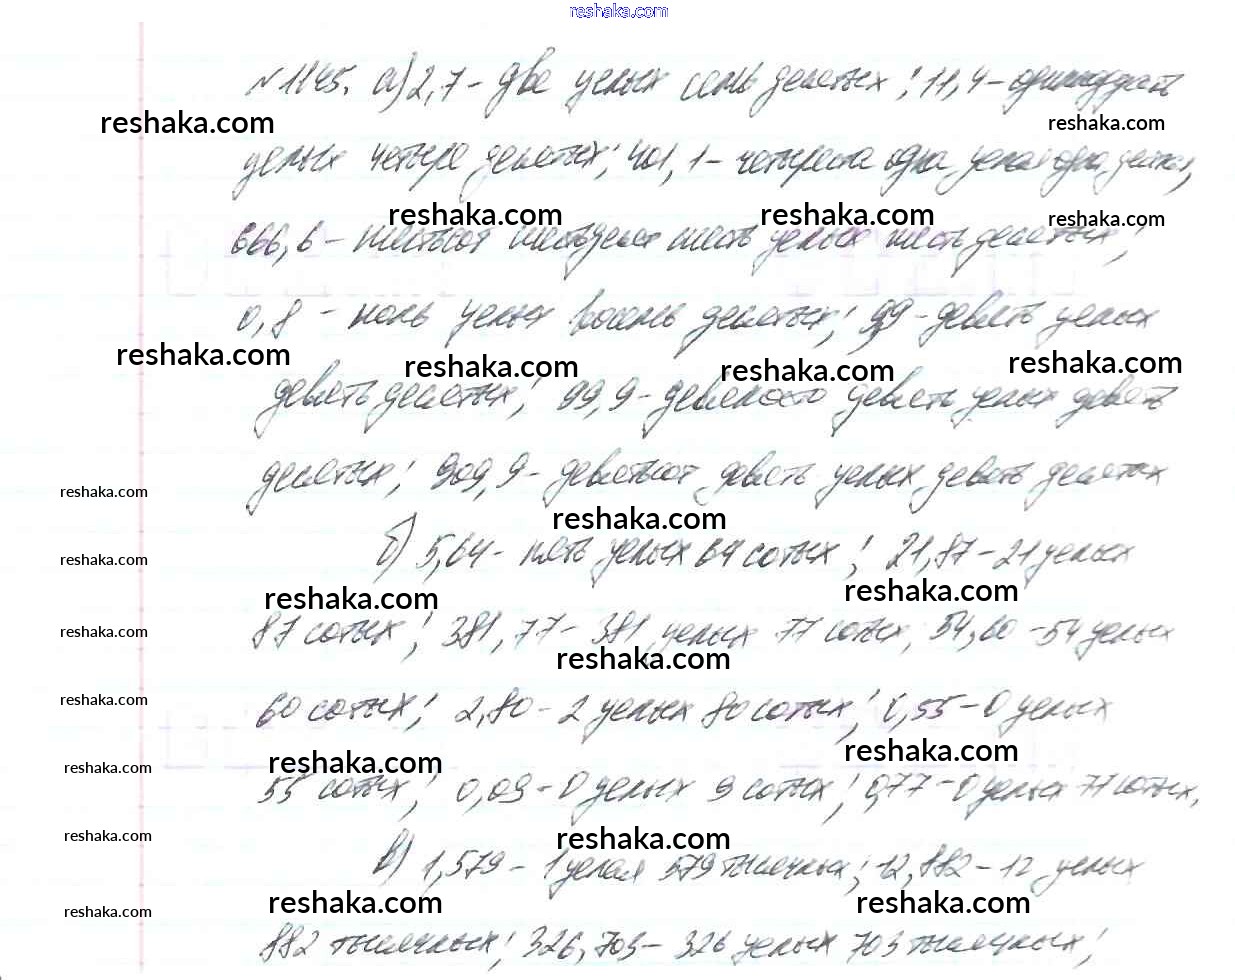 reshaka.com
№1145. а) 2,7 - две целых семь десятых; 11,4 - одиннадцать
reshaka.com reshaka.com
целых четыре десятых; 401,1 - четыреста одна целая одна десятая,
reshaka.com reshaka.com reshaka.com
666,6 - шестьсот шестьдесят шесть целых шесть десятых;
0,8 - ноль целых восемь десятых; 9,9 - девять целых
reshaka.com reshaka.com reshaka.com reshaka.com
девять десятых; 99,9 - девяносто девять целых девять
десятых; 909,9 - девятьсот девять целых девять десятых
reshaka.com reshaka.com
б) 5,64 - пять целых 64 сотых; 21,87 - 21 целых
reshaka.com reshaka.com reshaka.com
87 сотых; 381,77 - 381 целых 77 сотых, 54,60 - 54 целых
reshaka.com reshaka.com
60 сотых; 2,80 - 2 целых 80 сотых; 0,55 - 0 целых
reshaka.com reshaka.com reshaka.com
55 сотых; 0,09 - 0 целых 9 сотых; 0,77 - 0 целых 77 сотых,
reshaka.com reshaka.com reshaka.com
в) 1,579 - 1 целая 579 тысячных; 12,882 - 12 целых
reshaka.com reshaka.com reshaka.com
882 тысячных; 326,703 - 326 целых 703 тысячных;